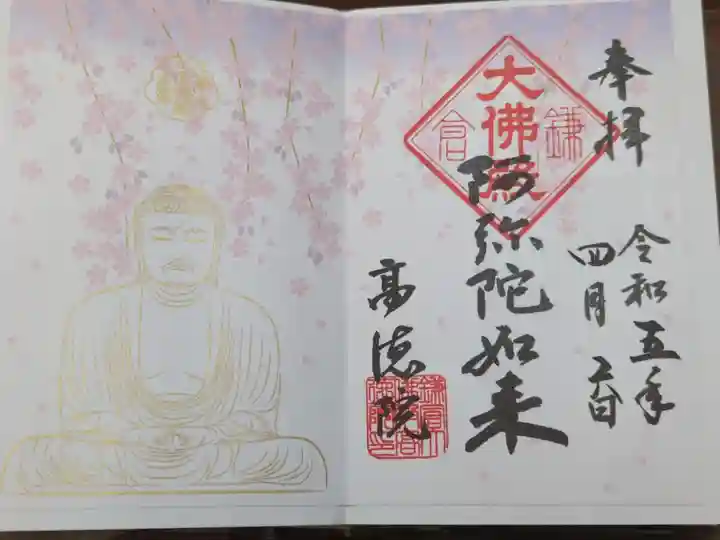 奉拝
令和五年
四月
大佛殿
鎌倉
阿弥陀如来
高徳院